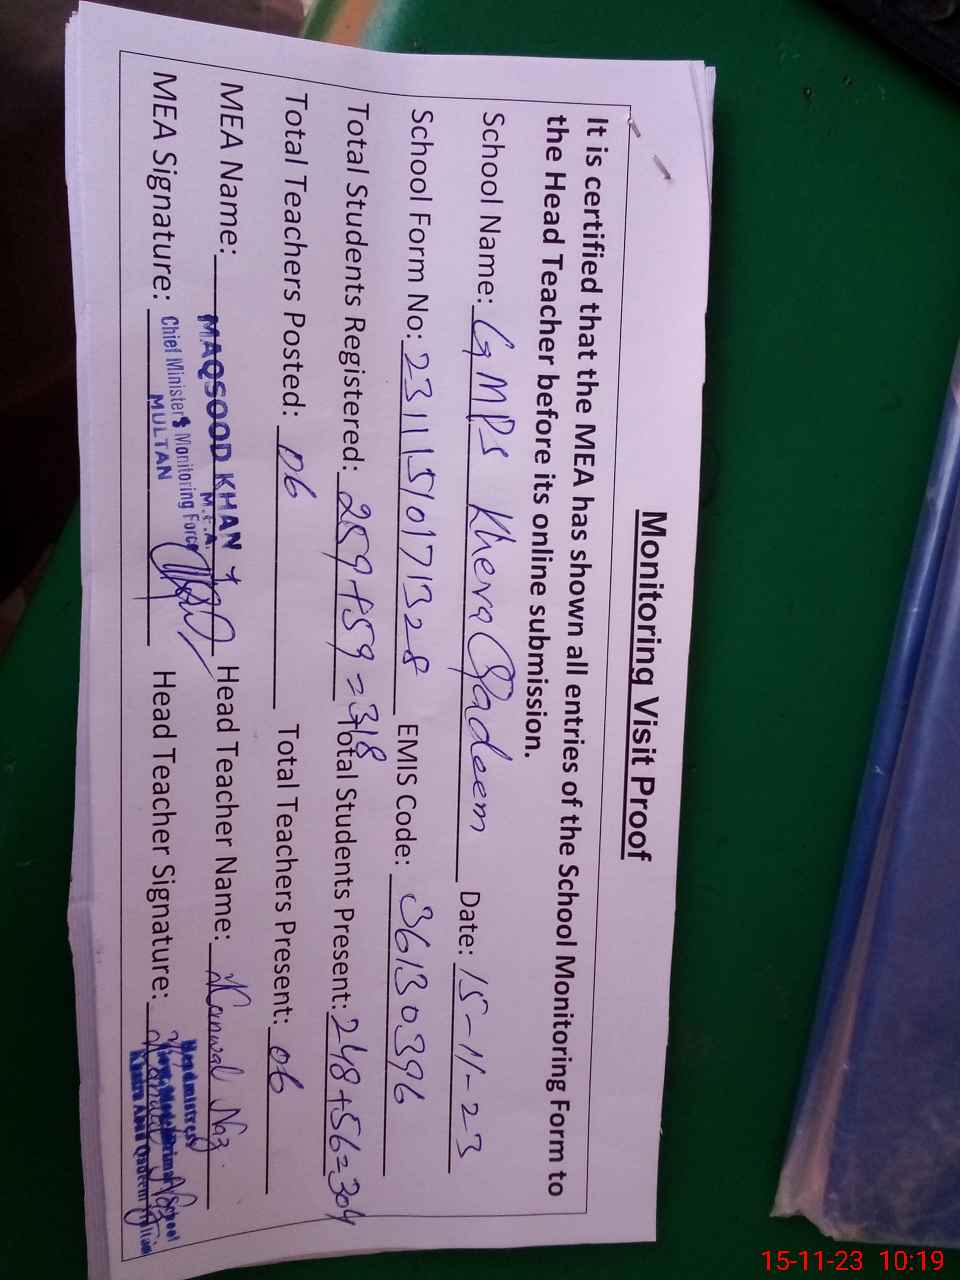 Monitoring Visit Proof
It is certified that the MEA has shown all entries of the School Monitoring Form to
the Head Teacher before its online submission.
School Name: GMPS Khera Qadeem Date: 15-11-23
School Form No: 23111510171328 EMIS Code: 36130396
Total Students Registered: 259+59=318 Total Students Present: 248+56=304
Total Teachers Posted: 06 Total Teachers Present: 06
MEA Name: MAQSOOD KHAN Head Teacher Name: Kanwal Naz
M.E.A
MEA Signature: Chief Minister's Monitoring Force Head Teacher Signature: Kanwal Naz
MULTAN
Headmistress
Govt. Model Primary School
Khaira Abad Qadeem Multan
15-11-23 10:19